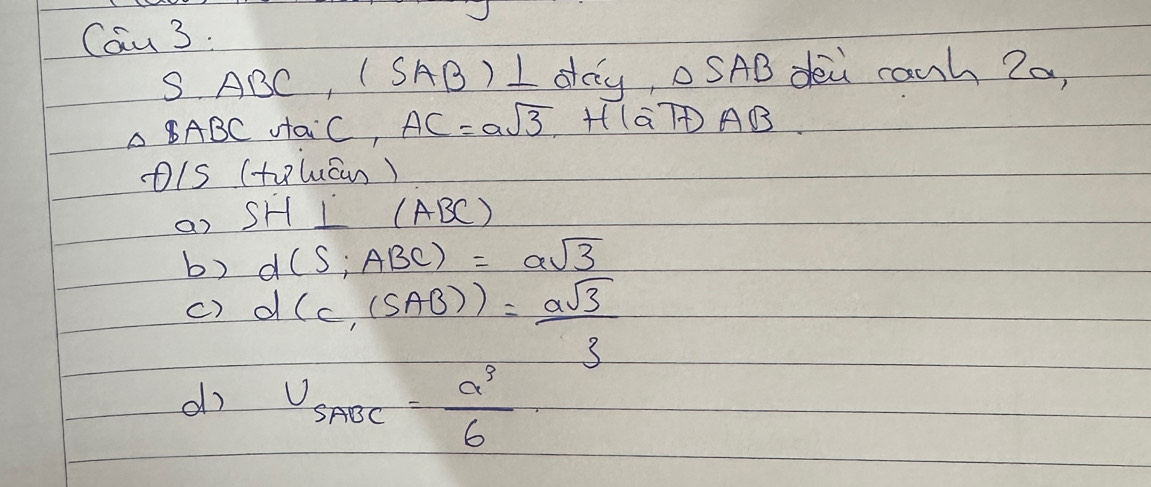 Câu 3:
S.ABC, (SAB) ⊥ đáy, Δ SAB đều cạnh 2a,
Δ ABC v tại C, AC = a√3. H là TĐ AB.
Đ/S (tự luận)
a) SH ⊥ (ABC)
b) d(S; ABC) = a√3
c) d(c, (SAB)) = a√3/3
d) V_SABC = a³/6.